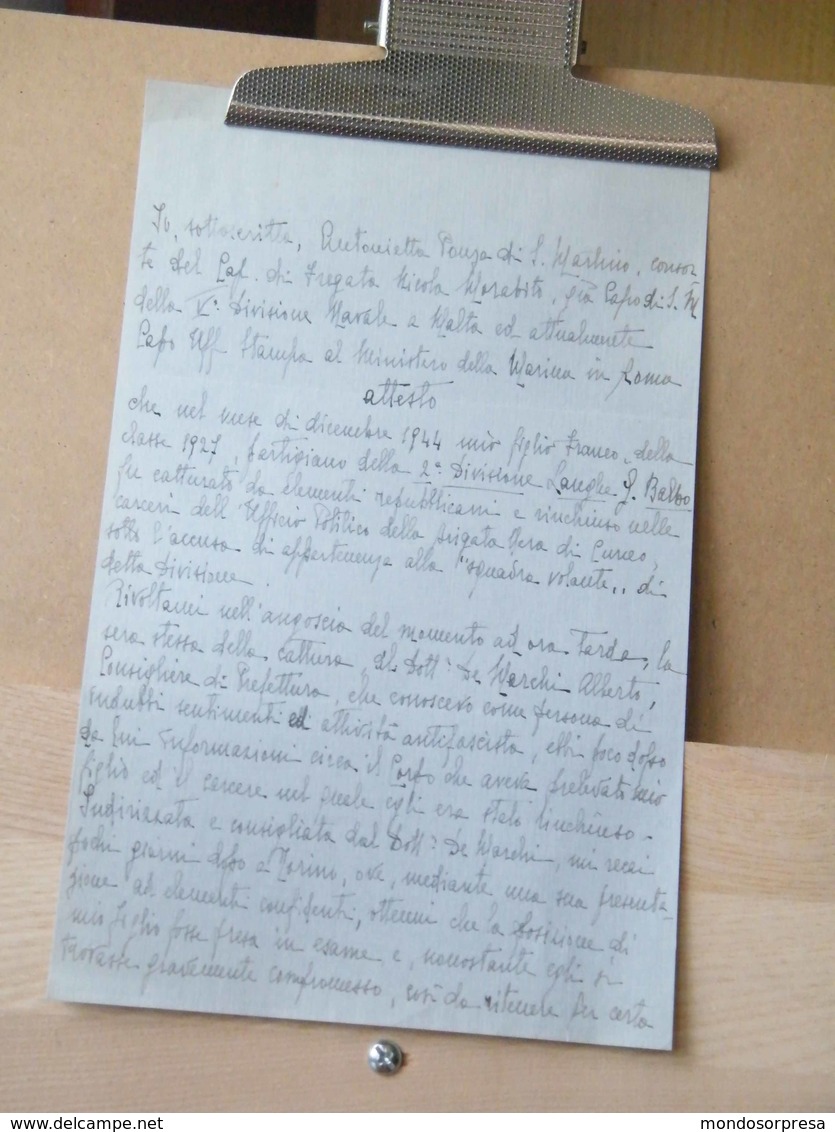 Io, sottoscritta, Antonietta Ponza di S. Martino, consor-
te del Cap. di Fregata Nicola Morabito, già Capo di S. M
della V.ª Divisione Navale a Malta ed attualmente
Capo Uff Stampa al Ministero della Marina in Roma
attesto
che nel mese di dicembre 1944 mio figlio Franco, della
classe 1927, partigiano della 2ª Divisione Langhe G. Balbo
fu catturato da elementi repubblicani e rinchiuso nelle
carceri dell'Ufficio Politico della Brigata Nera di Cuneo,
sotto l'accusa di appartenenza alla "squadra volante" di
detta Divisione.
Rivoltami nell'angoscia del momento ad ora tarda, la
sera stessa della cattura, al Dott: De Marchi Alberto,
Consigliere di Prefettura, che conoscevo come persona di
indubbi sentimenti ed attività antifascista, ebbi poco dopo
da lui informazioni circa il Corpo che aveva prelevato mio
figlio ed il carcere nel quale egli era stato rinchiuso -
Indirizzata e consigliata dal Dott: De Marchi, mi recai
pochi giorni dopo a Torino, ove, mediante una sua presenta-
zione ad elementi confidenti, ottenni che la posizione di
mio figlio fosse presa in esame e, nonostante egli si
trovasse gravemente compromesso, così da ritenere per certa
delcampe.net
mondosorpresa